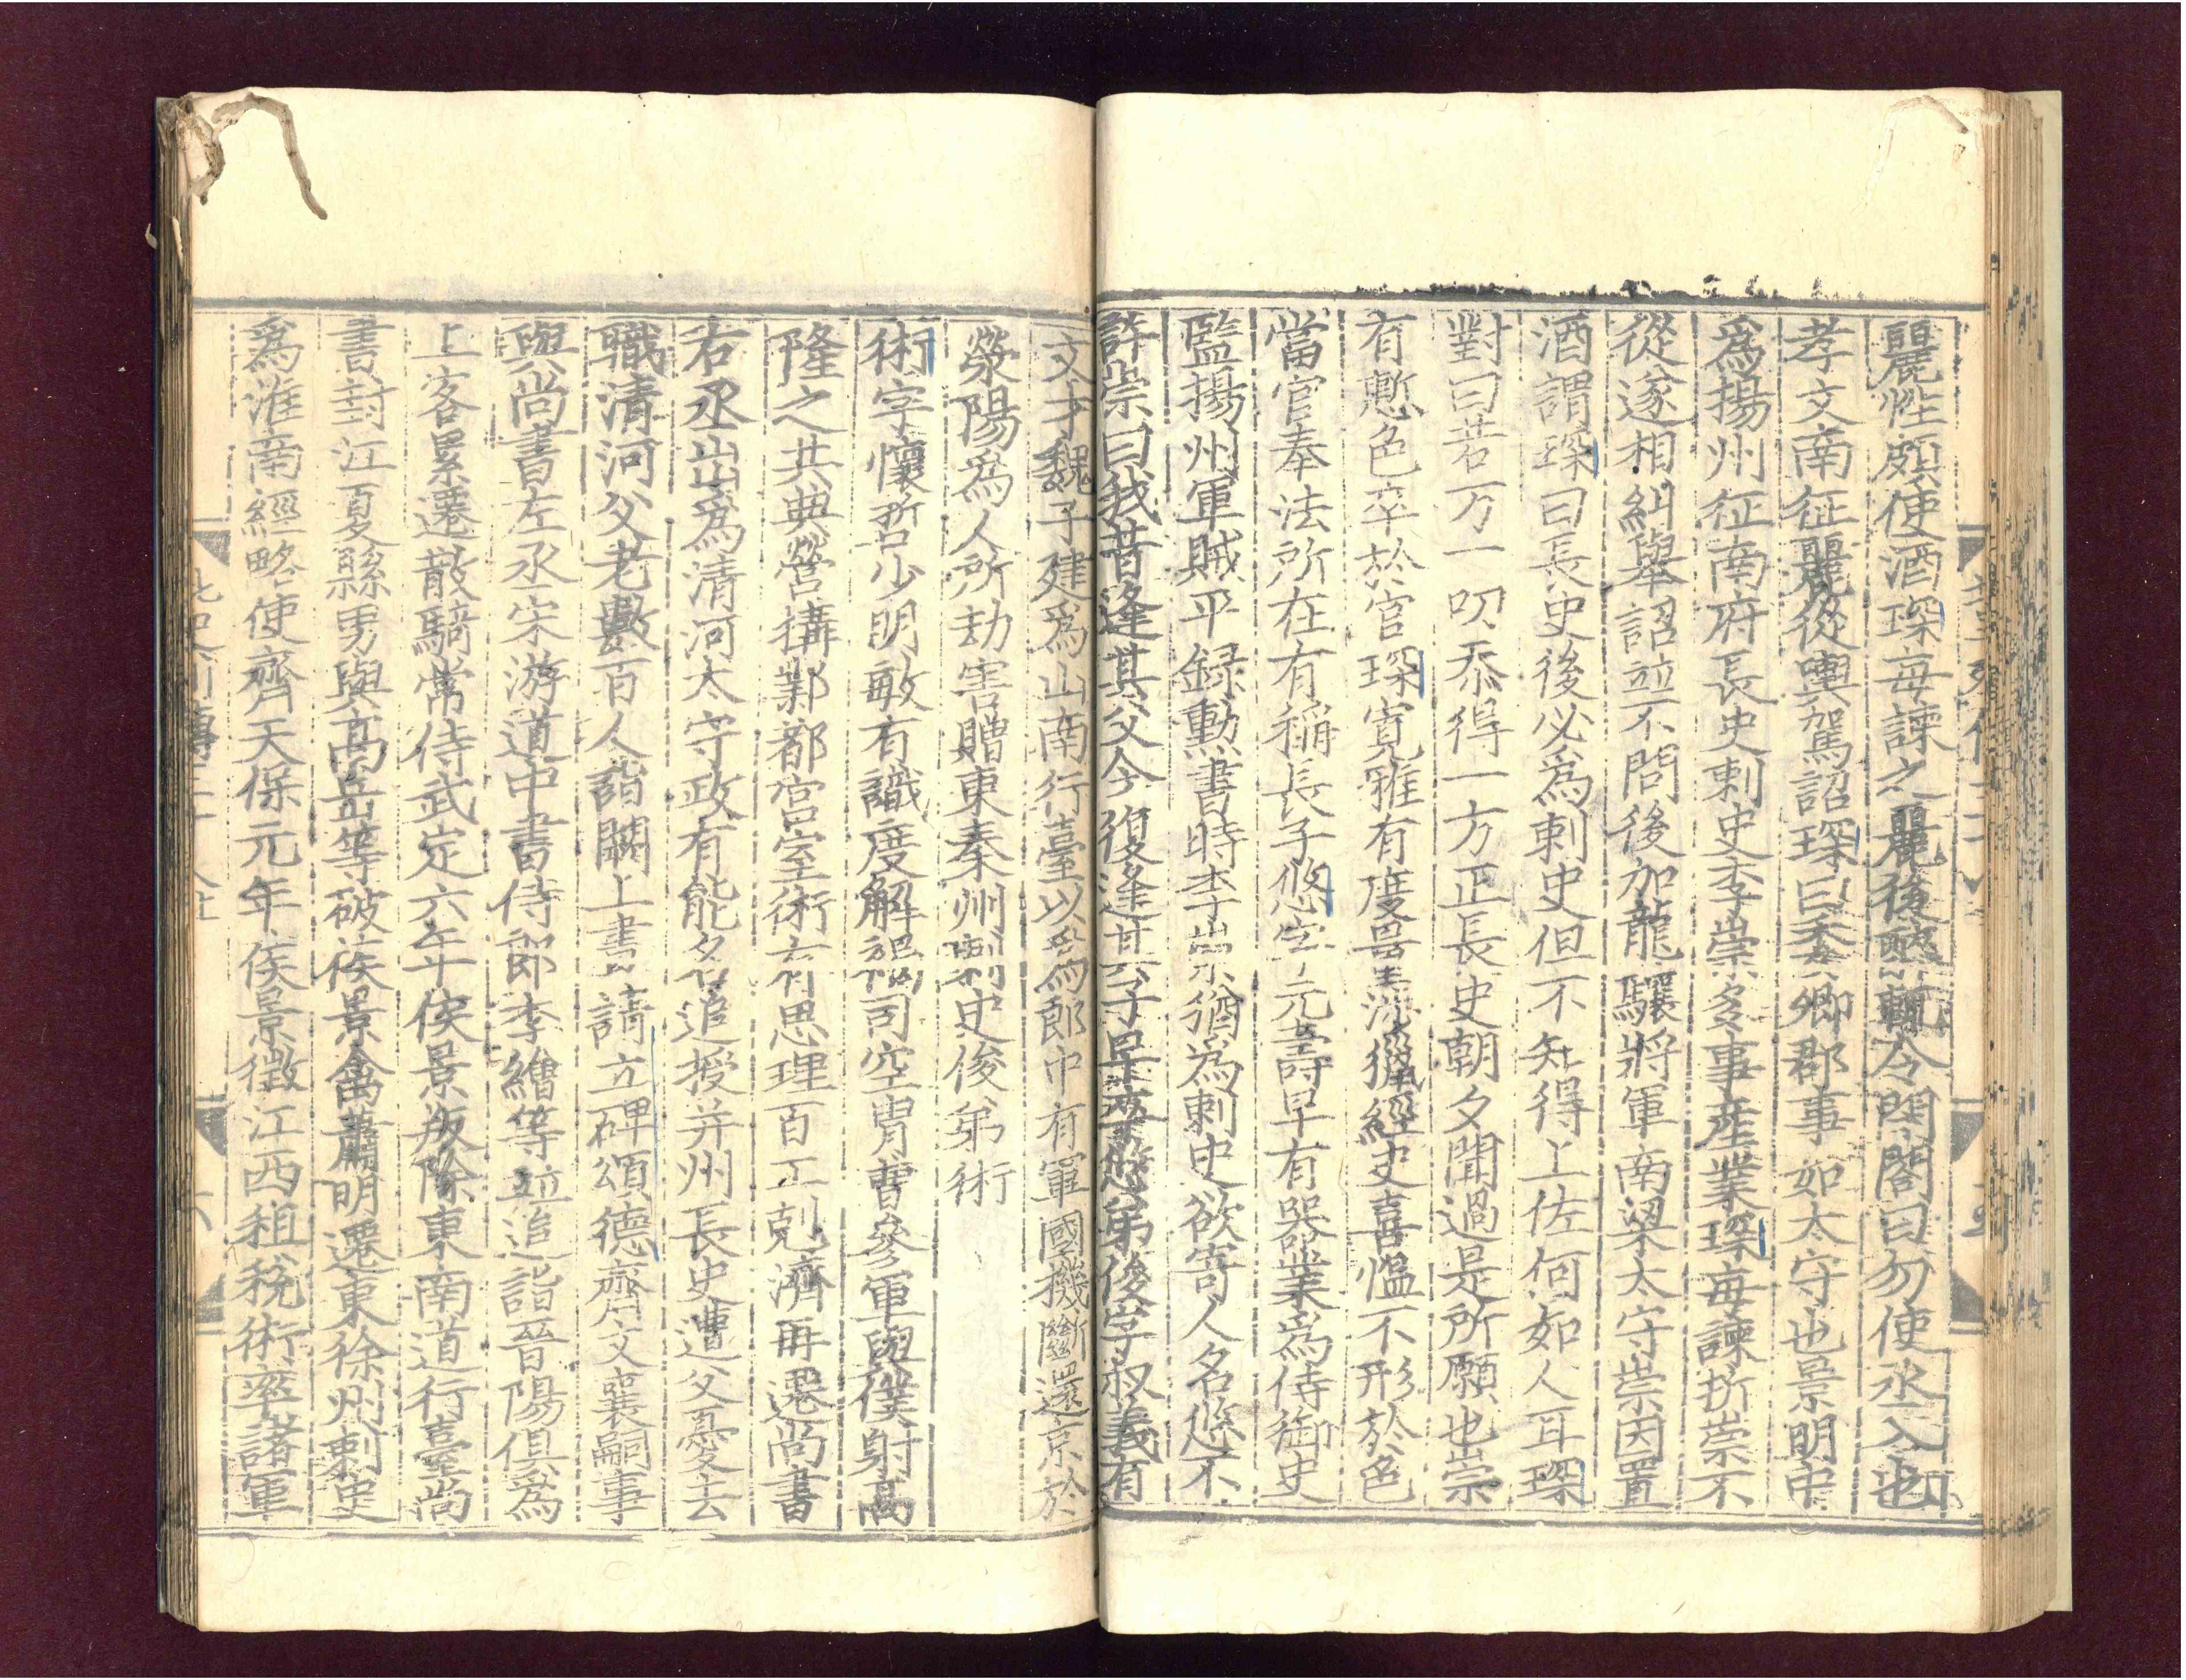 麗性頗使酒琛每諫之麗後醉輒令閉閤曰勿使丞入也
孝文南征麗從輿駕詔琛曰委卿郡事如太守也景明中
爲揚州征南府長史刺史李崇多事產業琛每諫折崇不
從遂相糾舉詔並不問後加龍驤將軍南梁太守崇因置
酒謂琛曰長史後必爲刺史但不知得上佐何如人耳琛
對曰若万一叨忝得一方正長史朝夕聞過是所願也崇
有慙色卒於官琛寬雅有度量涉獵經史喜慍不形於色
當官奉法所在有稱長子悠字元壽早有器業爲侍御史
監揚州軍賊平錄勳書時李崇猶爲刺史欲寄人名悠不
許崇曰我昔逢其父今復逢其子早卒悠弟俊字叔義有
文才魏子建爲山南行臺以爲郎中有軍國機斷還京於
滎陽爲人所劫害贈東秦州刺史俊弟術
術字懷哲少明敏有識度解褐司空冑曹參軍與僕射高
隆之共典營構鄴都宮室術有思理百工剋濟再遷尚書
右丞出爲清河太守政有能名追授并州長史遭父憂去
職清河父老數百人詣闕上書請立碑頌德齊文襄嗣事
與尚書左丞宋游道中書侍郎李繪等並追詣晉陽俱爲
上客累遷散騎常侍武定六年侯景叛除東南道行臺尚
書封江夏縣男與高岳等破侯景禽蕭明遷東徐州刺史
爲淮南經略使齊天保元年侯景徵江西租稅術率諸軍